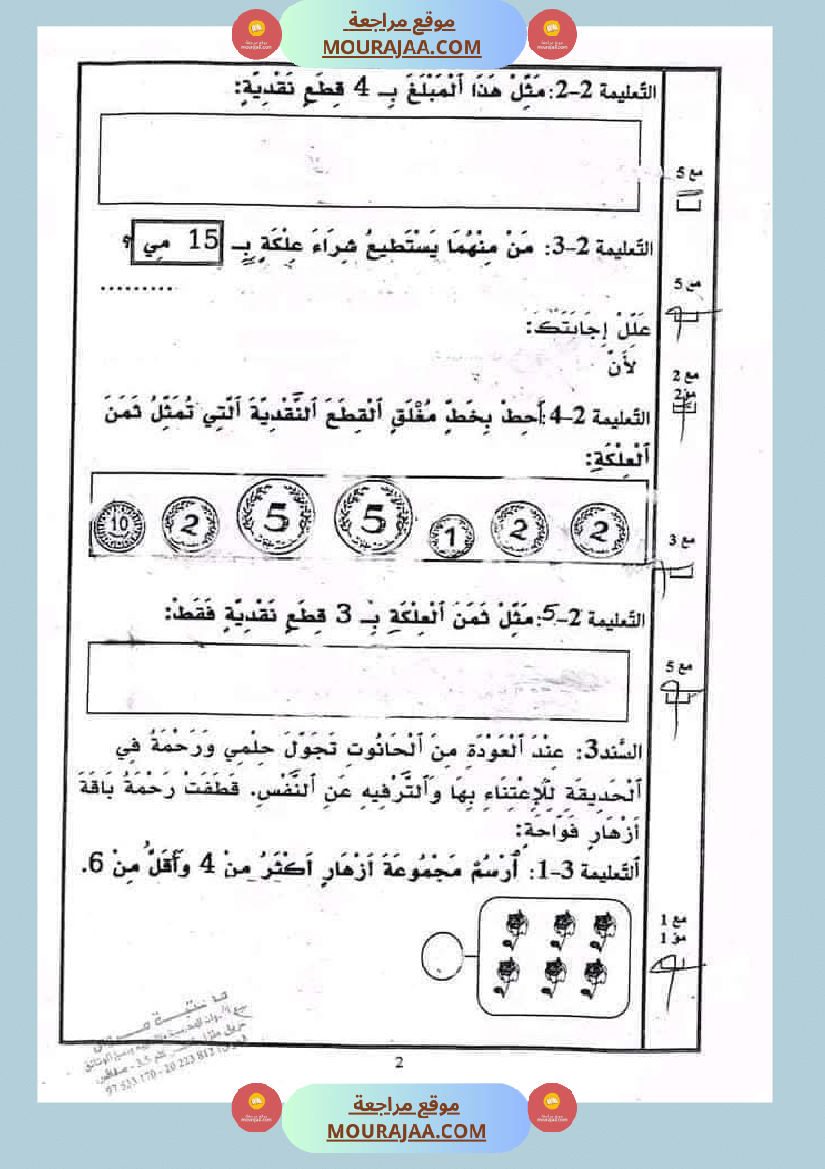 موقع مراجعة
MOURAJAA.COM
التّعليمة 2-2: مَثِّلْ هَذَا ٱلْمَبْلَغَ بِـ 4 قِطَعٍ نَقْدِيَّةٍ:
مع 5
التّعليمة 2-3: مَنْ مِنْهُمَا يَسْتَطيعُ شِرَاءَ عِلْكَةٍ بِـ 15 مي ؟
..........
مع 5
عَلِّلْ إِجَابَتَكَ:
لِأَنَّ
مع 2
التّعليمة 2-4: أَحِطْ بِخَطٍّ مُغْلَقٍ ٱلْقِطَعَ ٱلنَّقْدِيَّةَ ٱلَّتِي تُمَثِّلُ ثَمَنَ
ٱلْعِلْكَةِ:
10 2 5 5 1 2 2
مع 3
التّعليمة 2-5: مَثِّلْ ثَمَنَ ٱلْعِلْكَةِ بِـ 3 قِطَعٍ نَقْدِيَّةٍ فَقَطْ:
مع 5
السَّند3: عِنْدَ ٱلْعَوْدَةِ مِنَ ٱلْحَانُوتِ تَجَوَّلَ حِلْمِي وَرَحْمَةُ فِي
ٱلْحَدِيقَةِ لِلْإِعْتِنَاءِ بِهَا وَٱلتَّرْفِيهِ عَنِ ٱلنَّفْسِ. قَطَفَتْ رَحْمَةُ بَاقَةَ
أَزْهَارٍ فَوَّاحَةٍ:
ٱلتّعليمة 3-1: أَرْسُمُ مَجْمُوعَةَ أَزْهَارٍ أَكْثَرُ مِنْ 4 وَأَقَلُّ مِنْ 6.
مع 1
مع 1
2
موقع مراجعة
MOURAJAA.COM